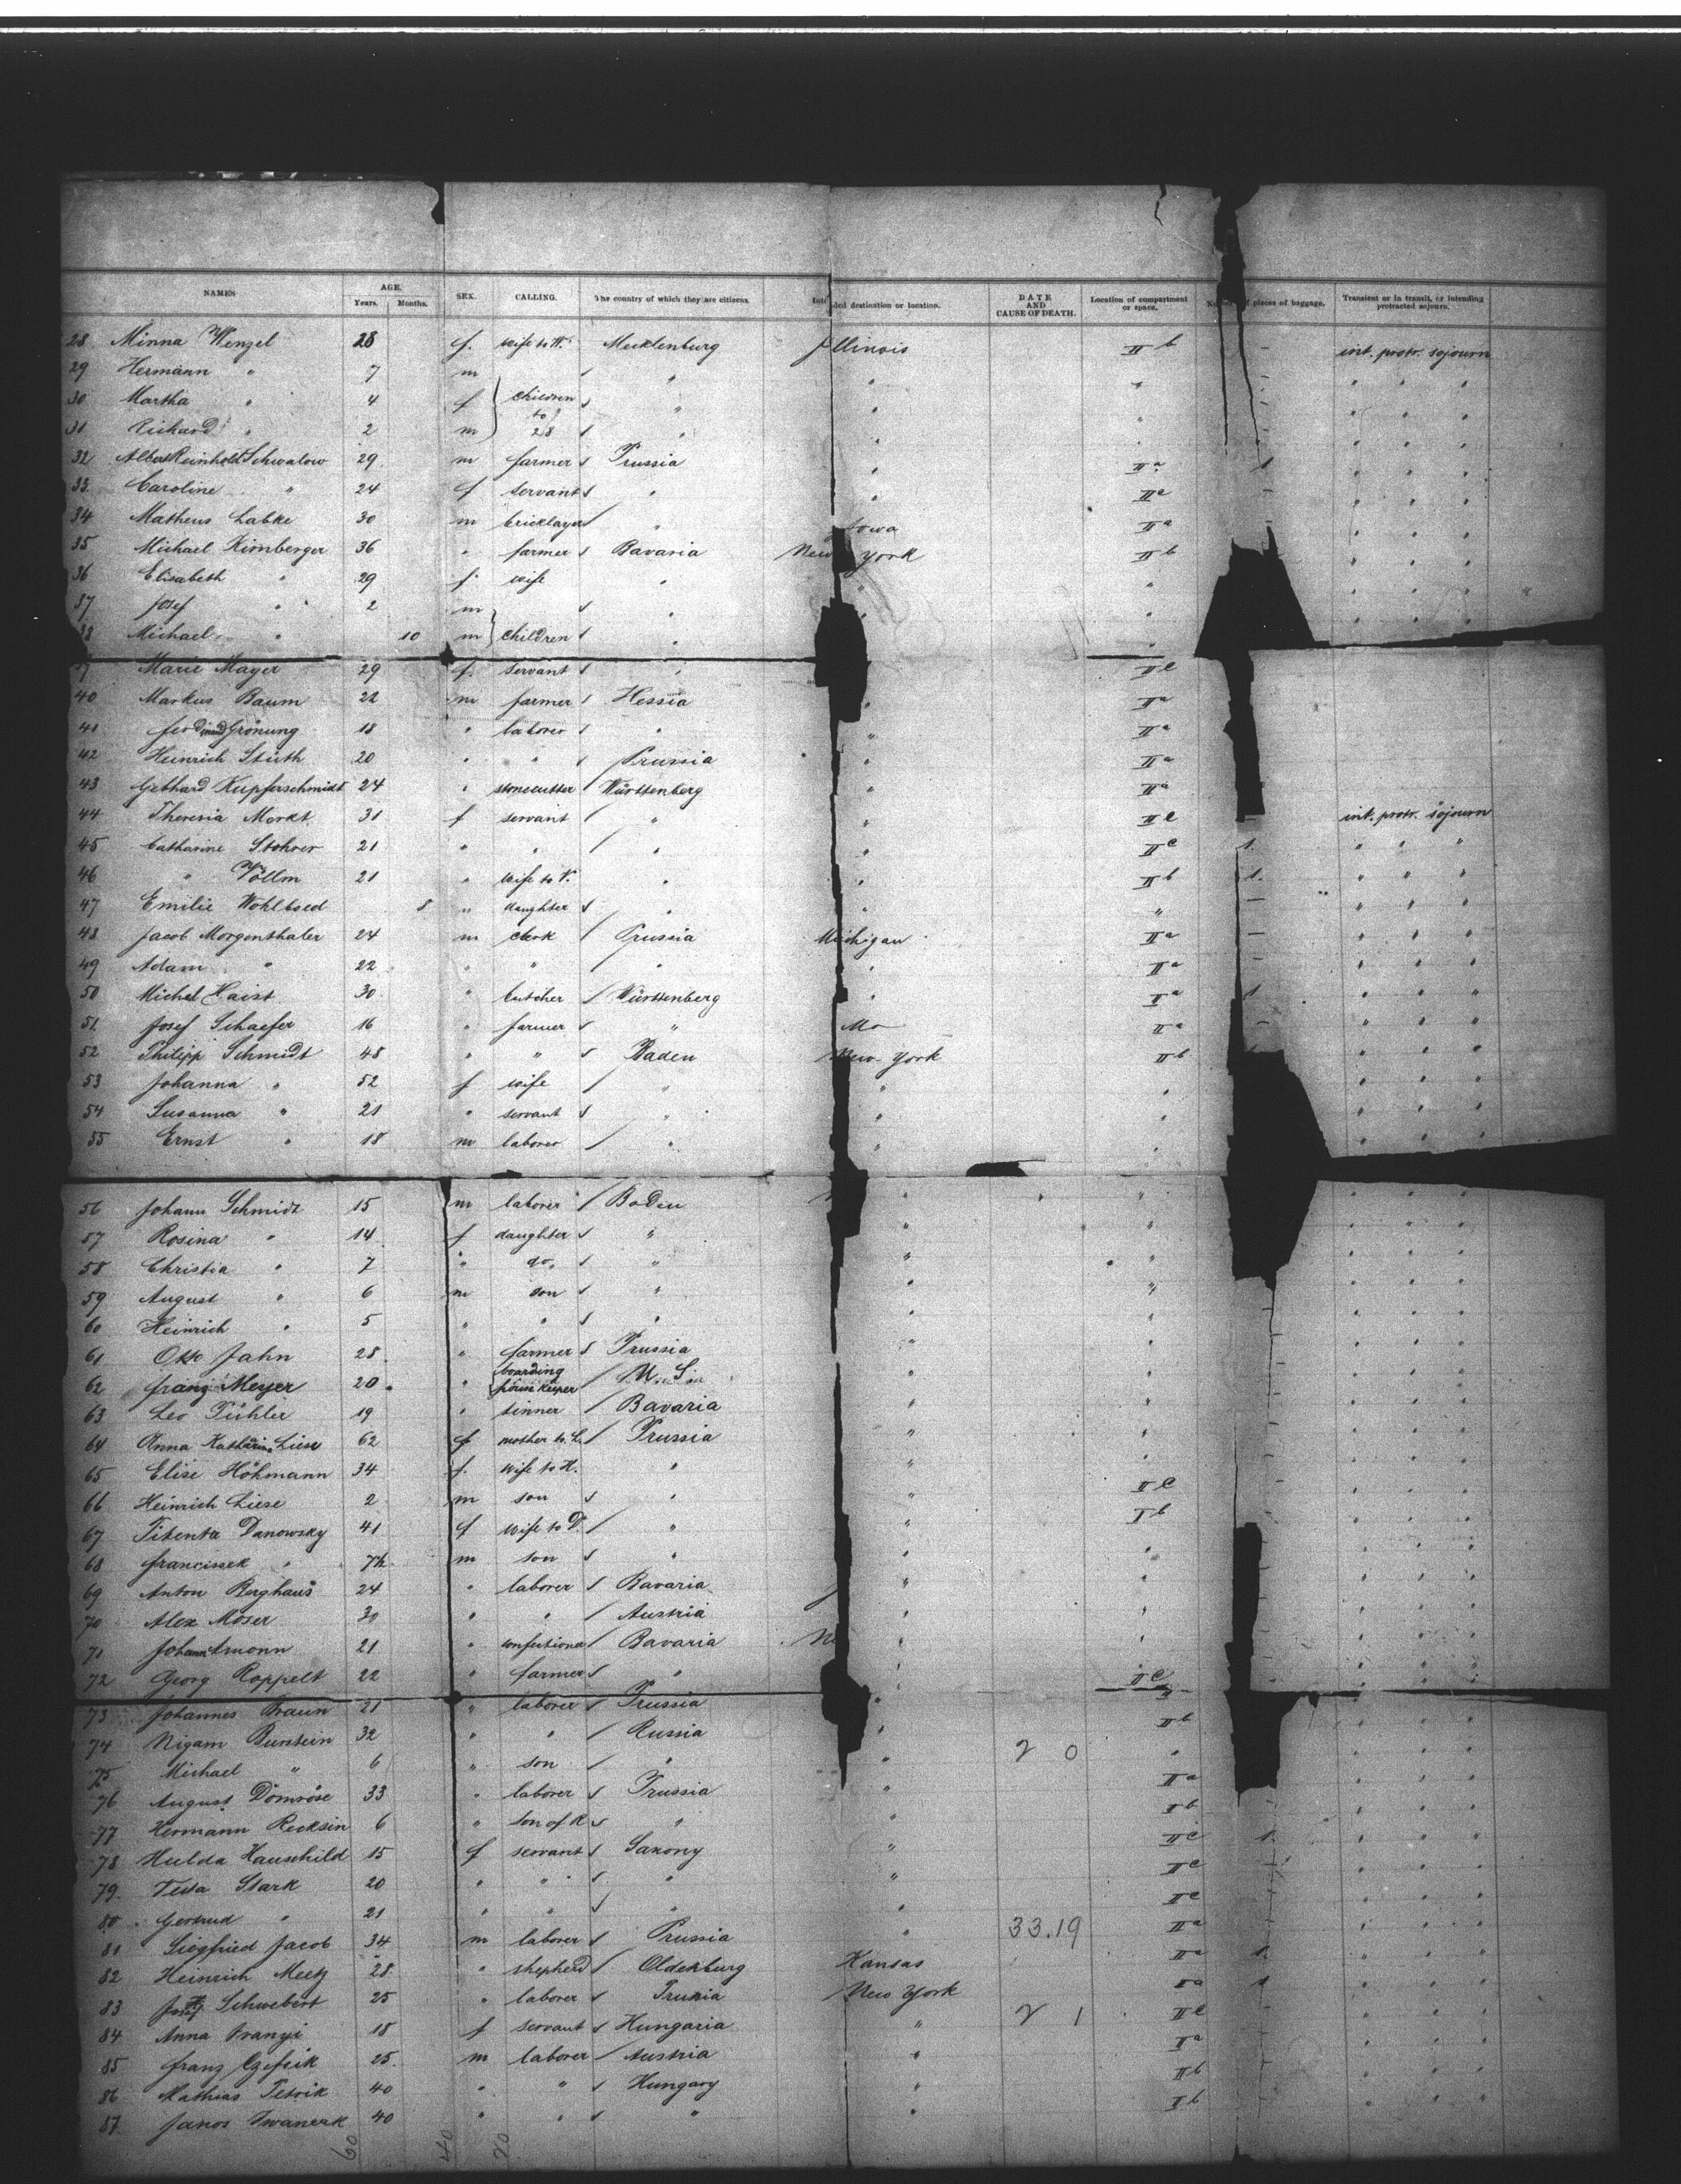 NAMES AGE. Years. Months. SEX. CALLING. The country of which they are citizens. Intended destination or location. DATE AND CAUSE OF DEATH. Location of compartment or space. pieces of baggage. Transient or in transit, or intending protracted sojourn.
28 Minna Wenzel 28 f. wife to W. Mecklenburg Illinois II b - int. protr. sojourn
29 Hermann " 7 m " " " - " " "
30 Martha " 4 f children " " " - " " "
31 Richard " 2 m to 28 " " " - " " "
32 Albert Reinhold Schwalow 29 m farmer Prussia " II a 1. " " "
33. Caroline " 24 f servant " " II a - " " "
34 Matheus Labke 30 m bricklayer " Iowa II a - " " "
35 Michael Kirnberger 36 " farmer Bavaria New York II b " " "
36 Elisabeth " 29 f. wife " " " " " "
37 Josef " 2 m " " " " " "
38 Michael " 10 m children " " "
39 Marie Mayer 29 f. servant " II c
40 Markus Baum 22 m farmer Hessia " II a
41 Ferdinand Gröning 18 " laborer " " II a
42 Heinrich Stüth 20 " " Prussia " II a
43 Gebhard Kupferschmidt 24 " stonecutter Württenberg " II a
44 Theresia Merkt 31 f servant " " II c - int. protr. sojourn
45 Catharine Stohrer 21 " " " " II c 1. " " "
46 " Völlm 21 " wife to V. " " II b 1. " " "
47 Emilie 8 " daughter " " " - " " "
48 Jacob Morgenthaler 24 m clerk Prussia Michigan II a - " " "
49 Adam " 22 " " " " II a " " "
50 Michel Haist 30 " butcher Württenberg " II a 1 " " "
51. Josef Schaefer 16 " farmer " Mo II a - " " "
52 Philipp Schmidt 48 " " Baden New York II b " " "
53 Johanna " 52 f wife " " " " " "
54 Susanna " 21 " servant " " " " " "
55 Ernst " 18 m laborer " " " " " "
56 Johann Schmidt 15 m laborer Baden " " " " "
57 Rosina " 14 f daughter " " " " " "
58 Christia " 7 " do. " " " " " "
59 August " 6 m son " " " " " "
60 Heinrich " 5 " " " " " - " " "
61 Otto Jahn 28. " farmer Prussia " " - " " "
62 Franz Meyer 20 " boarding house keeper U. S. " " - " " "
63 Leo Pühler 19 " tinner Bavaria " " - " " "
64 Anna Katharina Liese 62 f mother to L. Prussia " " - " " "
65 Elise Höhmann 34 f. wife to H. " " " - " " "
66 Heinrich Liese 2 m son " " II c - " " "
67 Danowsky 41 f wife to D. " " I b " " "
68 Francissek " m son " " " " " "
69 Anton Berghaus 24 " laborer Bavaria " " " " "
70 Alex Moser 30 " " Austria " " " " "
71 Johann Amonn 21 " Bavaria " " " " "
72 Georg Roppelt 22 " farmer " " II c " " "
73 Johannes Braun 21 " laborer Prussia " " " " "
74 Nigam Burstein 32 " " Russia " II b " " "
75 Michael " 6 " son " " 2 0 " " " "
76 August Dömröse 33 " laborer Prussia " II a " " "
77 Hermann Recksin 6 " son of R " " I b - " " "
78 Hulda Hauschild 15 f servant Saxony " II c 1. " " "
79. Stark 20 " " " " II c - " " "
80 Gertrud " 21 " " " " II c - " " "
81 Siegfried Jacob 34 m laborer Prussia " 33.19 II a - " " "
82 Heinrich Meetz 28. " shepherd Oldenburg Kansas II a 1. " " "
83 Josef Schwebert 25 " laborer Prussia New York II a 1 " " "
84 Anna Iranyi 18 f servant Hungaria " 2 1 II c - " " "
85 Franz 25. m laborer Austria " I a - " " "
86 Mathias Petrik 40 " " Hungary " II b - " " "
87 Janos 40 " " " " I b - " " "
60 40 20